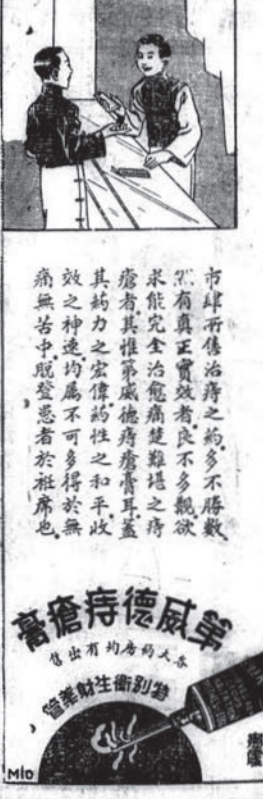 市肆所售治痔之葯多不勝數
然有真正實效者良不多覯欲
求能完全治愈痛楚難堪之痔
瘡者其惟第威德痔瘡膏耳蓋
其葯力之宏偉葯性之和平收
效之神速均属不可多得於無
痛無苦中脱登患者於袵席也
第威德痔瘡膏
各大葯房均有出售
特別衛生財美管
M10